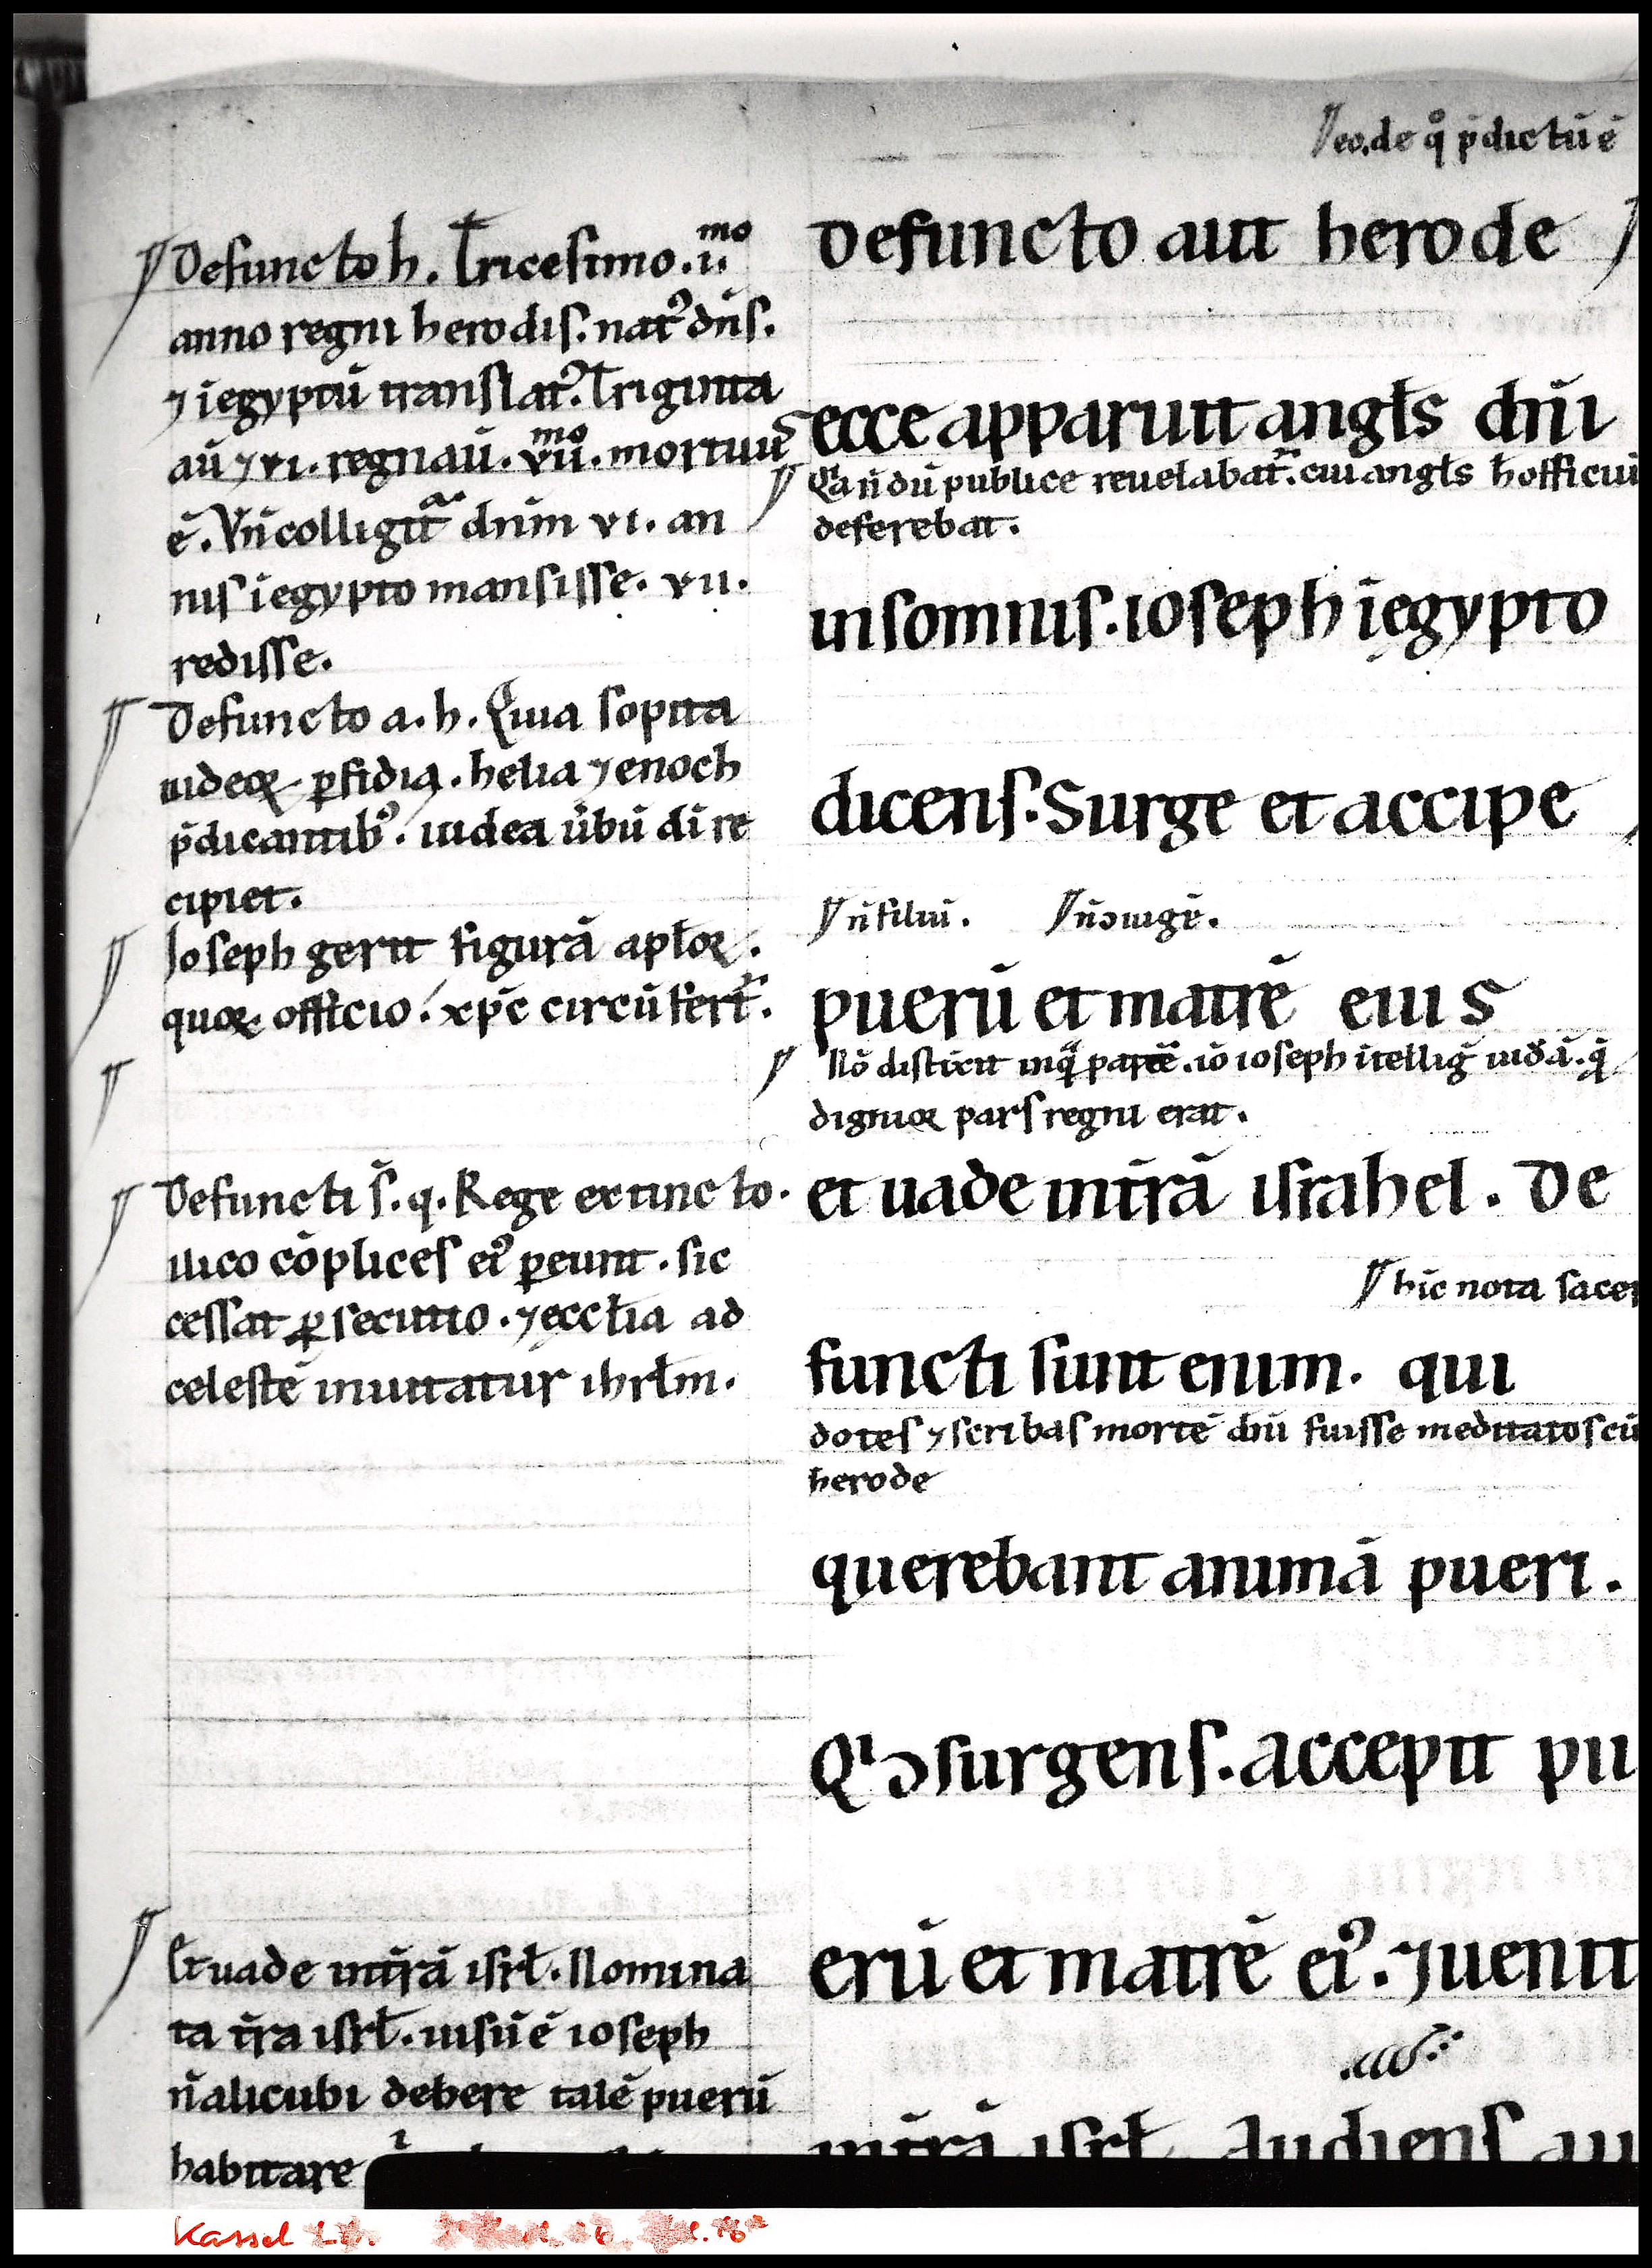 eo.de q̊ p̄dictū ē
Defuncto h. Tricesimo .ii.mo
anno regni herodis. nat᾽ dn̄s.
⁊ ī egyptū translat᾽. Triginta
aū ⁊ vi. regnaū. vii.mo mortuus
ē. Vn̄ colligit᷑ dn̄m vi. an
nis ī egypto mansisse. vii.
redisse.
Defuncto a. h. Quia sopita
iudeoꝝ ꝑfidia. helia ⁊ enoch
p̄dicantib᾽. iudea ūbū dī re
cipiet.
Ioseph gerit figurā apłoꝝ.
quoꝝ officio xp̄c circūfert᷑.
Defuncti s̄. q. Rege extincto.
ilico cōplices ei᾽ ꝑeunt. sic
cessat ꝑsecutio. ⁊ ecctia ad
celestē inuitatur ihrłm.
Et uade in tr̄ā isrł. Nomina
ta tr̄a isrł. uisū ē ioseph
n̄ alicubi debere talē puerū
habitare
Defuncto aut̄ herode
ecce apparuit angłs dn̄i
n̄dū publice reuelabat᷑. cui angłs h̄ officiū
deferebat.
in somnis. ioseph ī egypto
dicens. Surge et accipe
n̄ filiū. n̄ ɔiugē.
puerū et matrē eius
Nō distīxit in q̄ partē. iō ioseph ītelliḡ iudā. q̄
dignior pars regni erat.
et uade in tr̄ā israhel. De
hic nota sacer
functi sunt enim. qui
dotes ⁊ scribas mortē dn̄i fuisse meditatos cū
herode
querebant animā pueri.
Qi ɔsurgens. accepit pu
erū et matrē ei᾽. ⁊ uenit
in tr̄ā isrł. Audiens au
Kassel